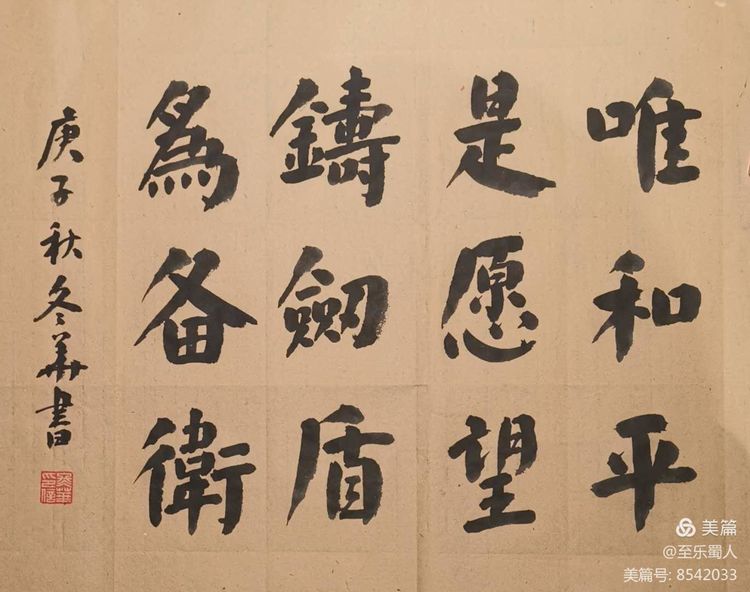 唯和平
是愿望
鑄劒盾
為备衛
庚子秋冬華書
美篇
@至乐蜀人
美篇号: 8542033